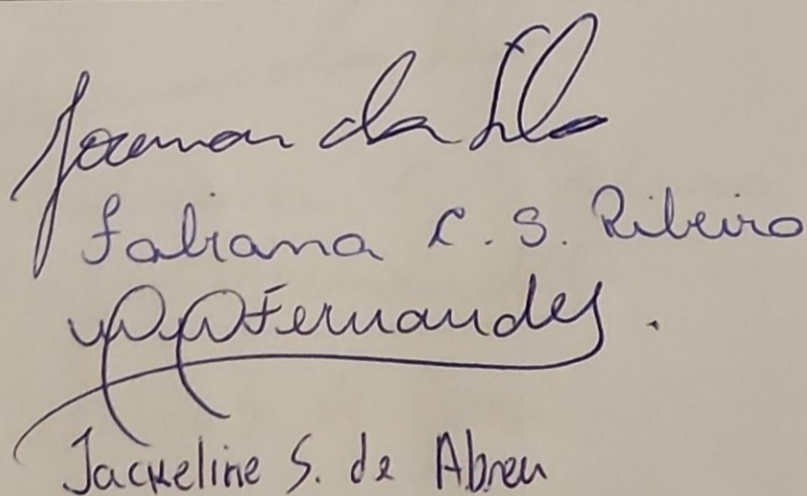 da Silva
Fabiana C. S. Ribeiro
Fernandes.
Jackeline S. de Abreu